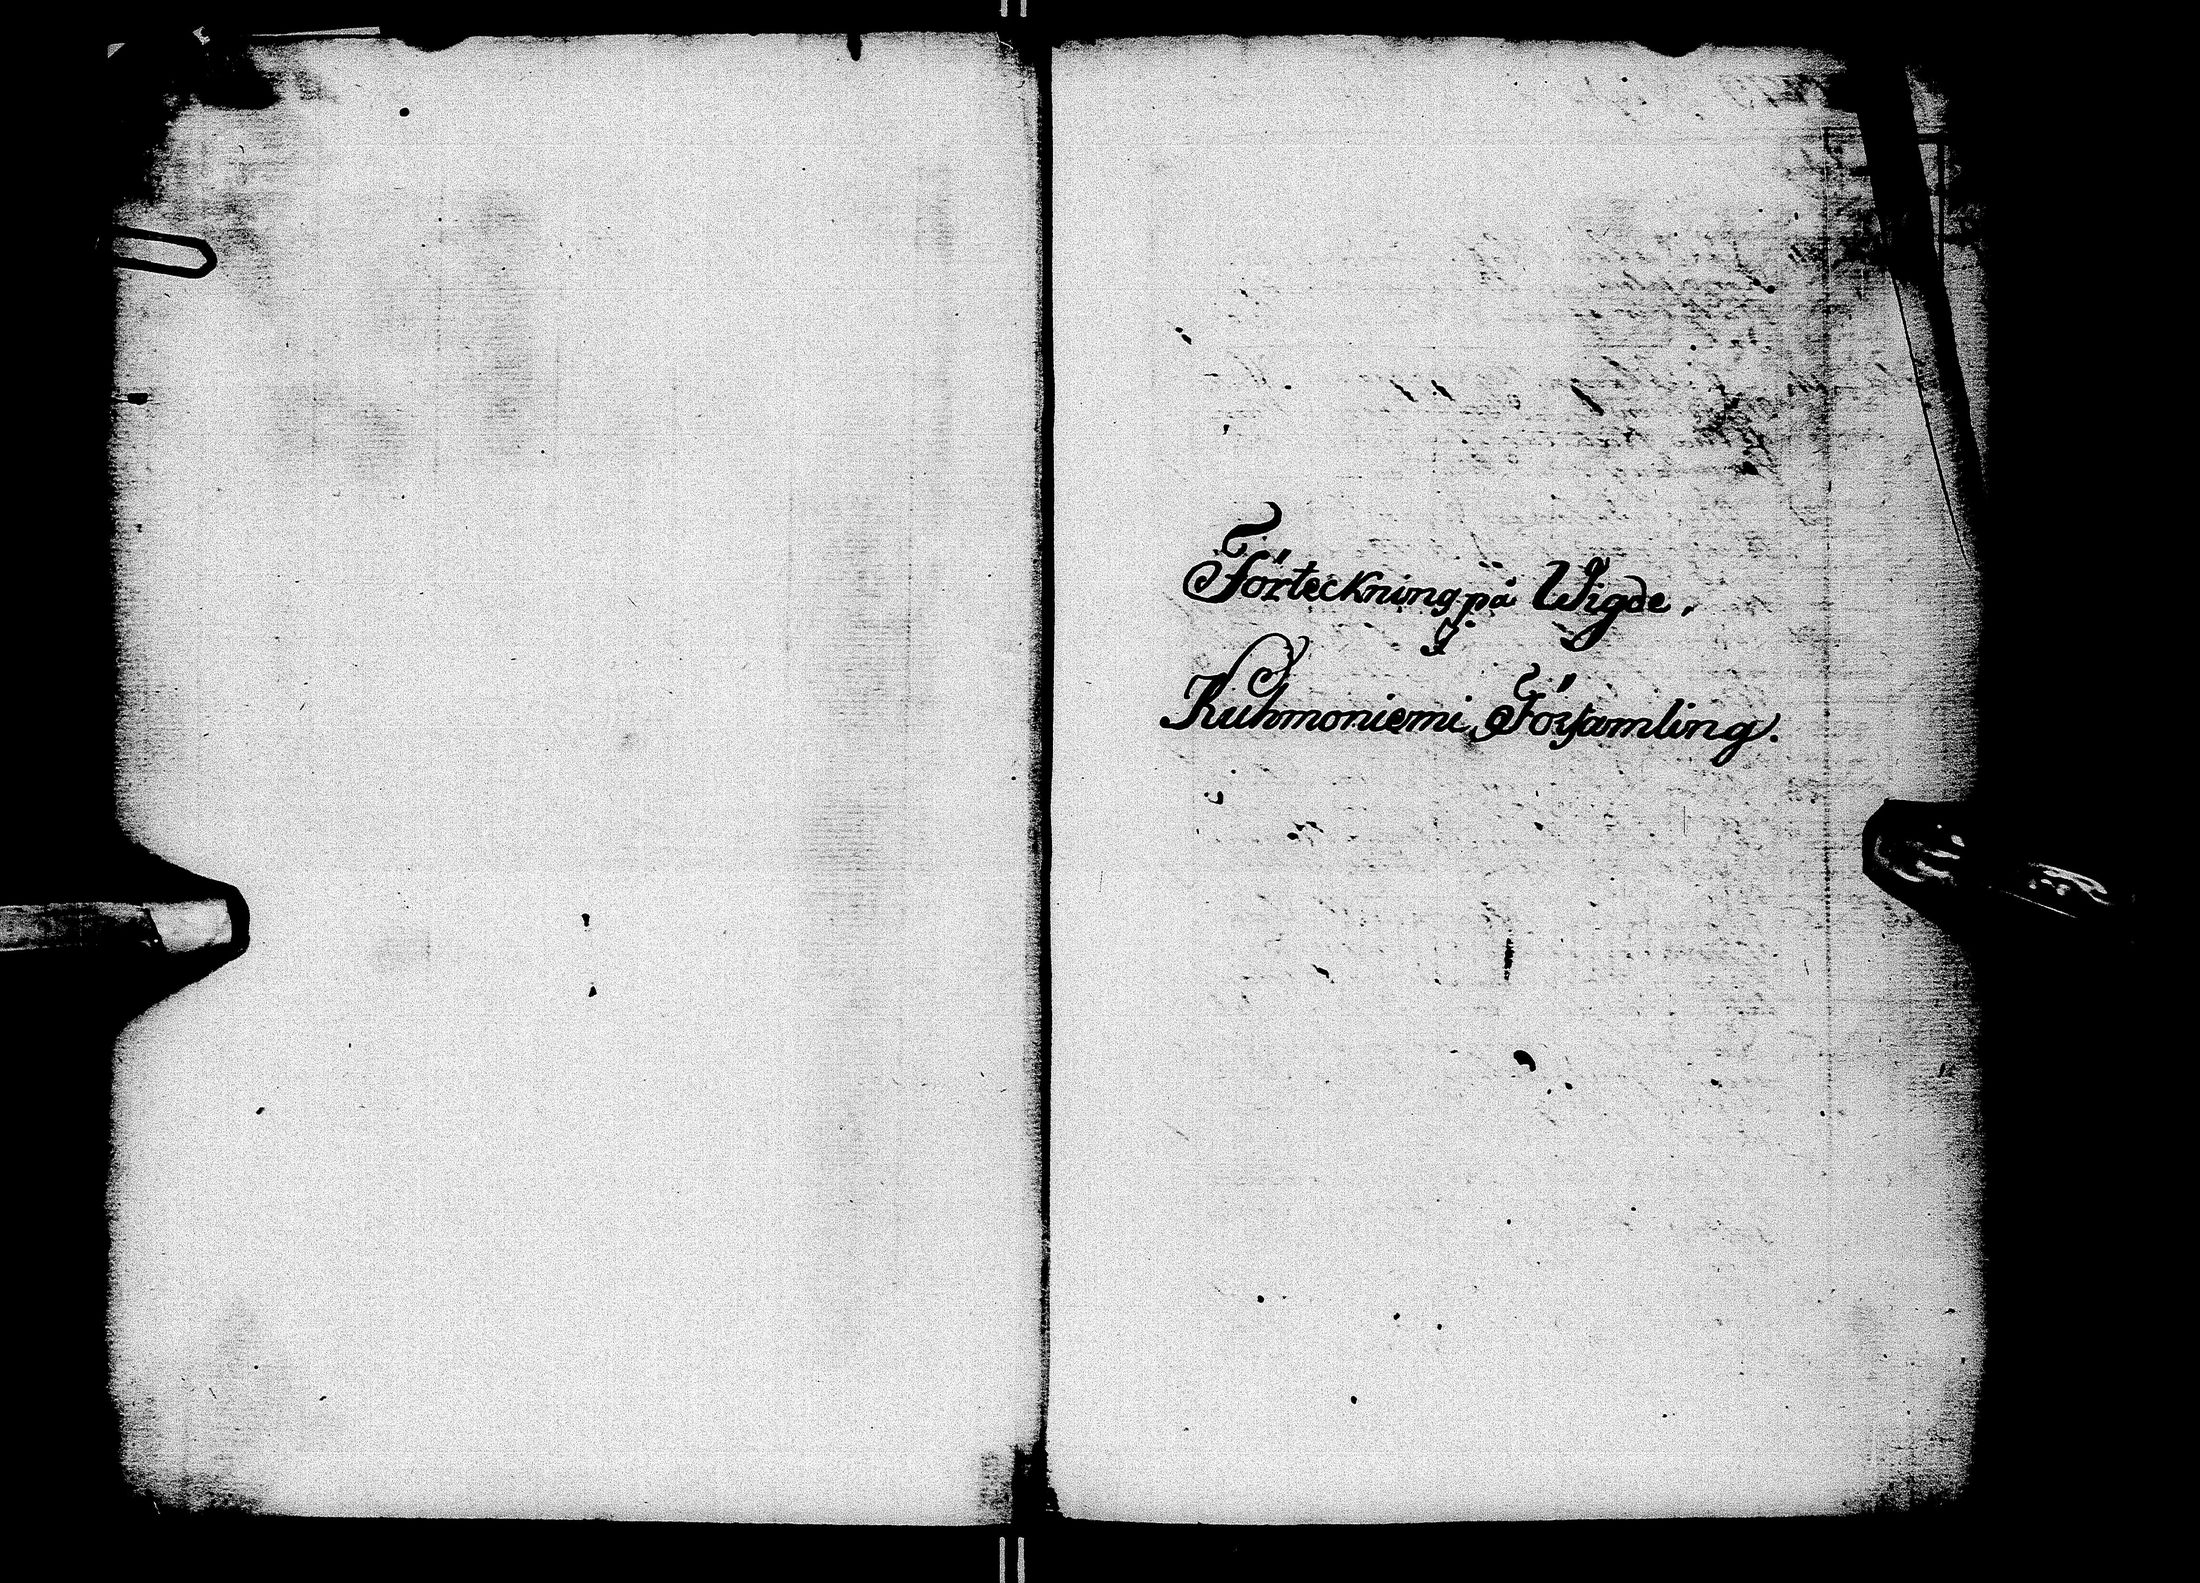 Förteckning på Wigde,
J
Kuhmoniemi Församling.